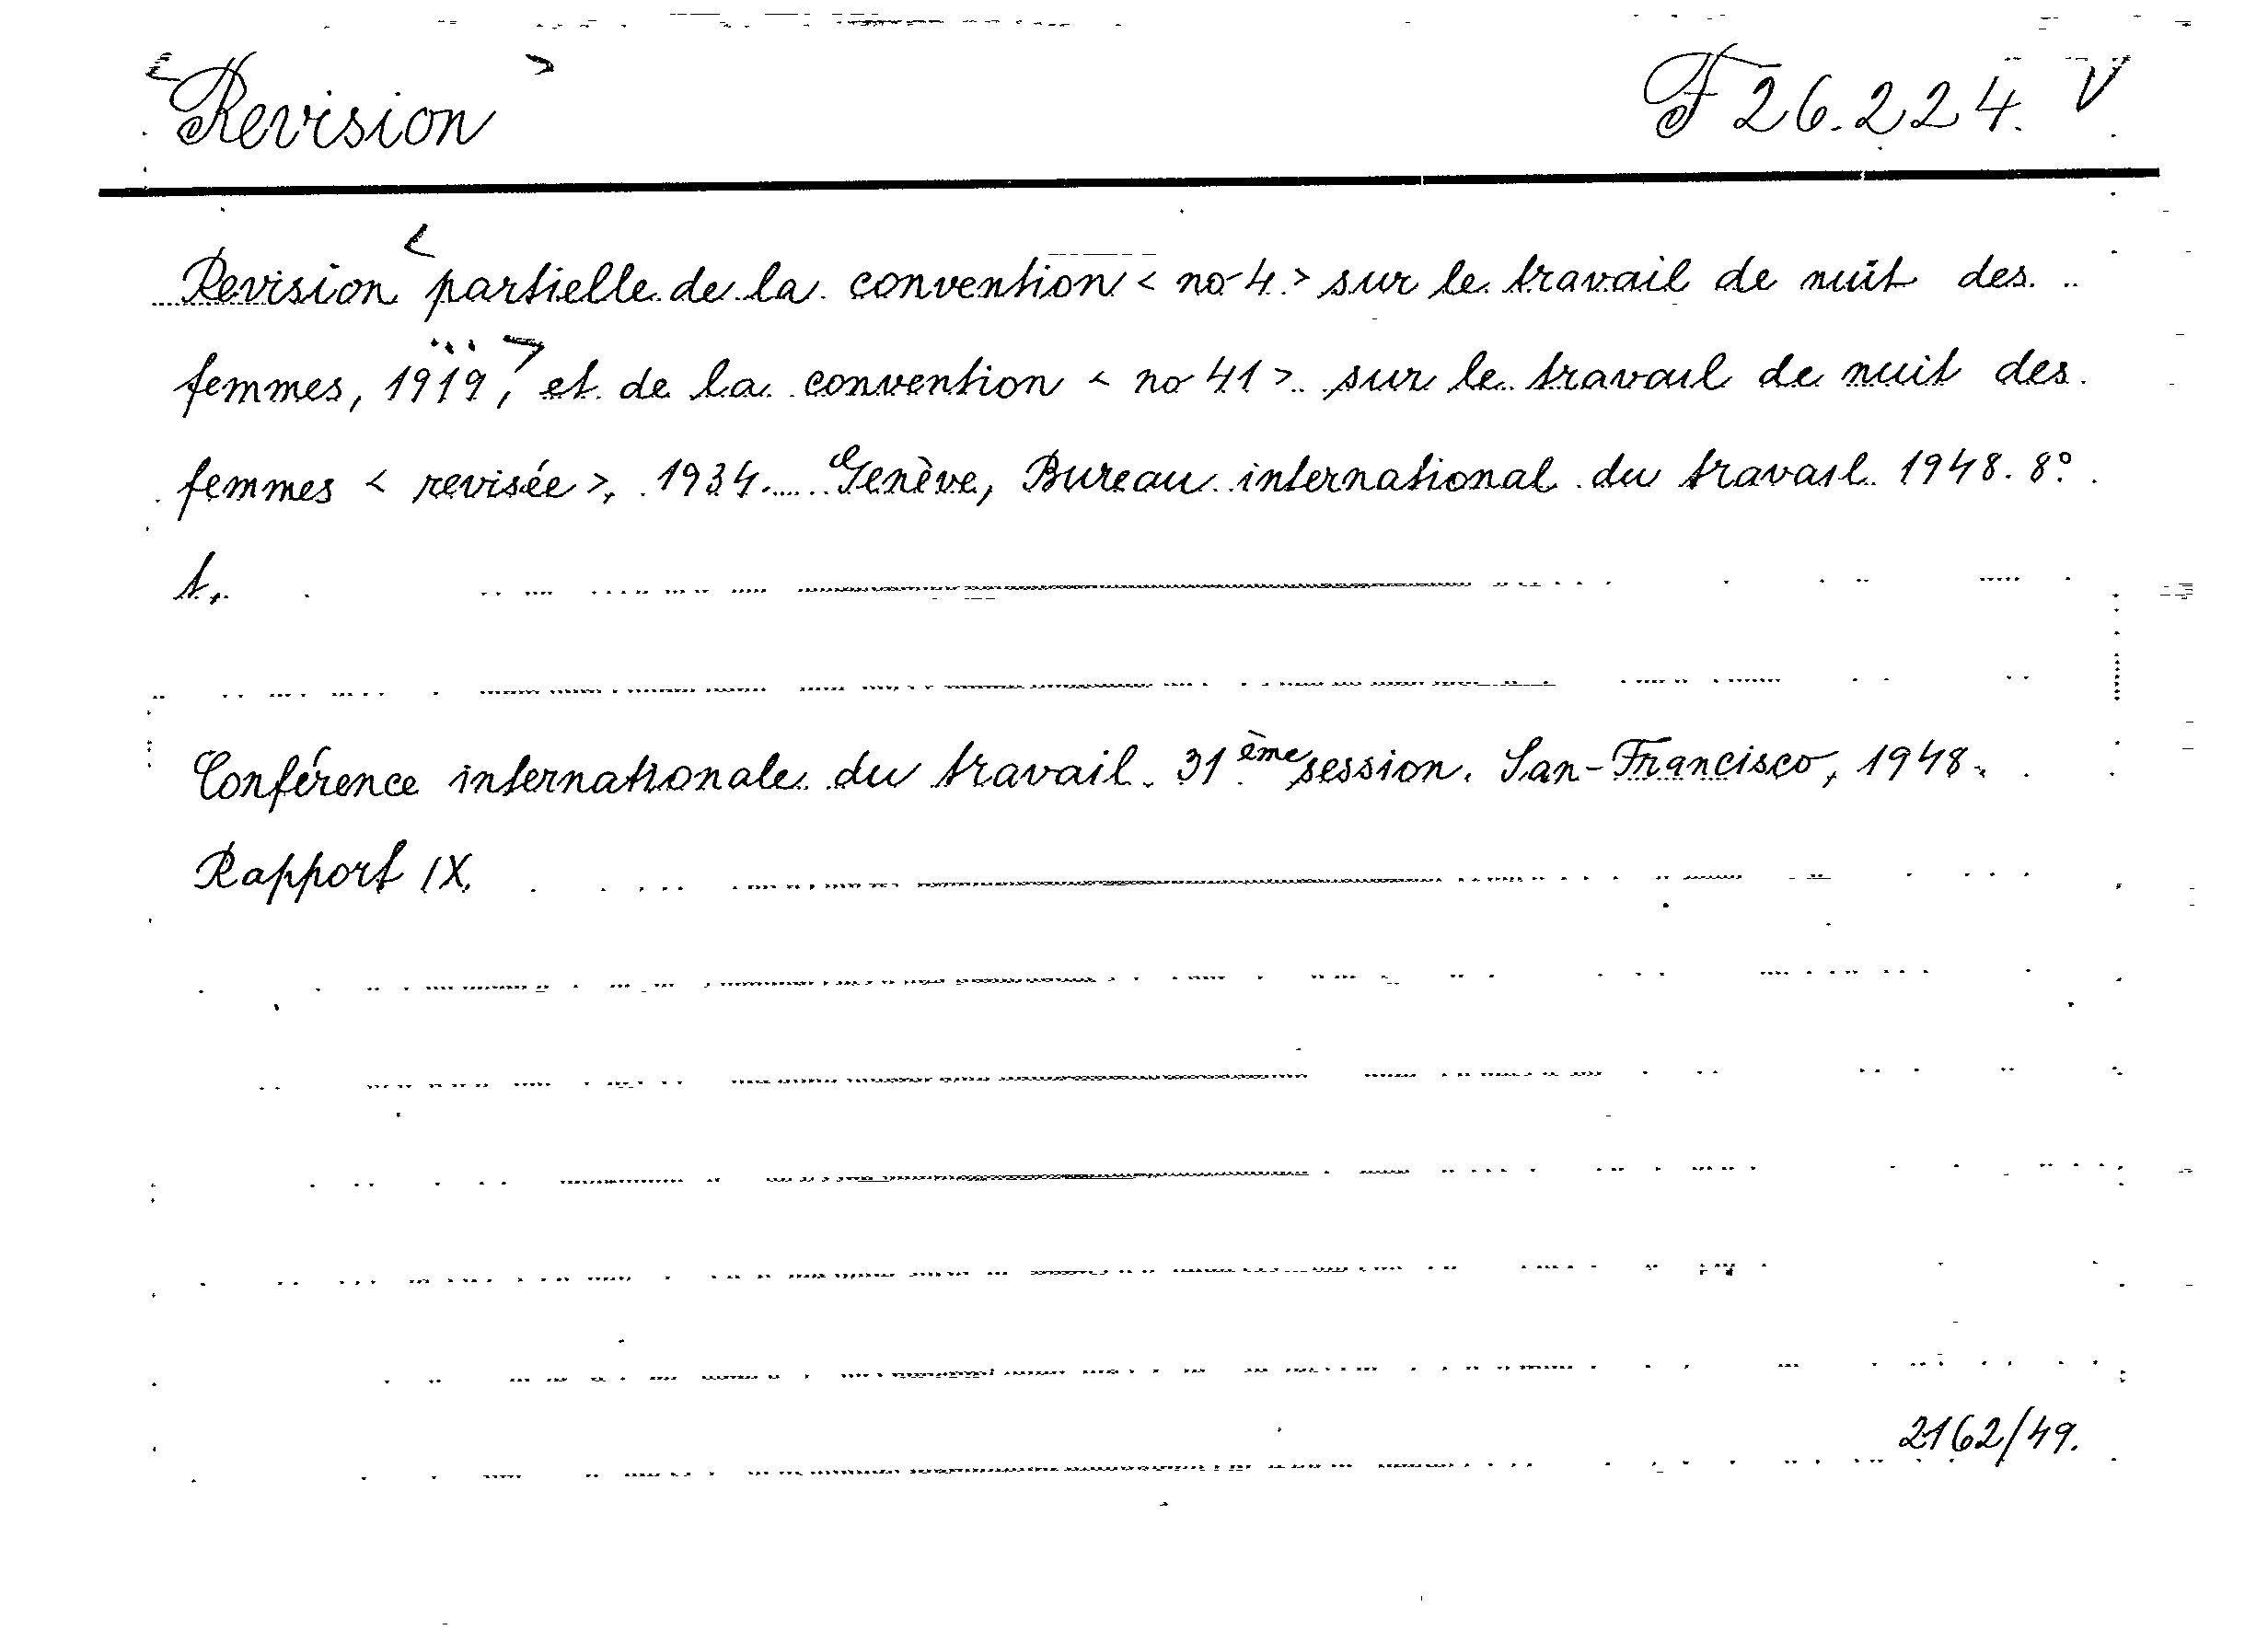 <Revision> F 26.224. V
Revision < partielle de la convention < no 4 > sur le travail de nuit des
femmes, 1919, ... > et de la convention < no 41 > sur le travail de nuit des
femmes < revisée >, 1934. Genève, Bureau international du travail 1948. 8°.
t.
Conférence internationale du travail. 31ème session. San-Francisco, 1948.
Rapport IX.
2162/49.